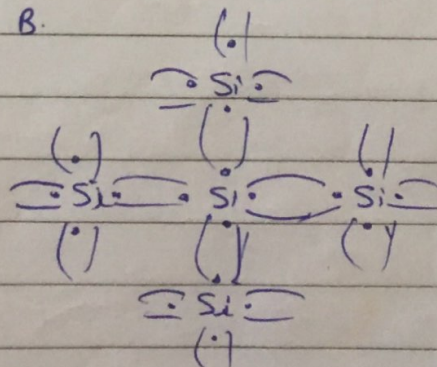 B.
Si
Si Si Si
Si